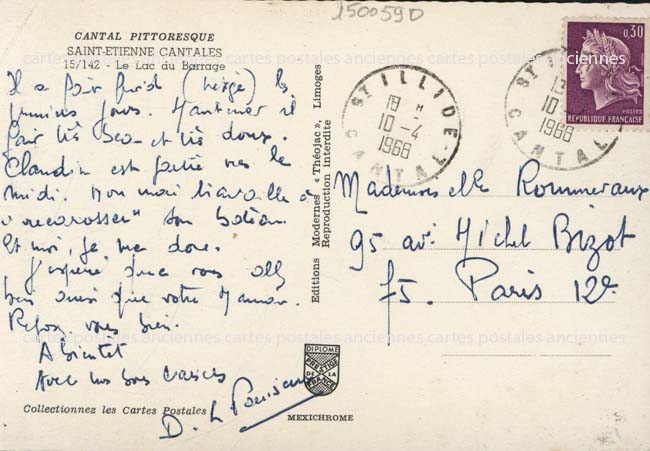 150059D
CANTAL PITTORESQUE
SAINT-ETIENNE CANTALES
15/142 - Le Lac du Barrage
Il a fait froid (neigé) les
premiers jours. Maintenant il
fait très beau et très doux.
Claudin est partie vers le
midi. Mon mari travaille à
"recarosser" son bateau.
Et moi, je me dore.
J'espère que vous allez
bien ainsi que votre Maman.
Reposez vous bien.
A bientôt
Avec nos bons baisers
D.
Collectionnez les Cartes Postales
Editions Modernes « Théojac », Limoges
Reproduction Interdite
DIPLOME
PRESTIGE
DE LA
FRANCE
MEXICHROME
ST ILLIDE
18 H
10-4
1968
CANTAL
ST ILLIDE
18
10
1968
CANTAL
0,30
POSTES
REPUBLIQUE FRANÇAISE
Mademoiselle Rommeraux
95 av. Michel Bizot
75. Paris 12e
cartes postales anciennes cartes postales anciennes cartes postales anciennes
cartes postales anciennes cartes postales anciennes cartes postales anciennes